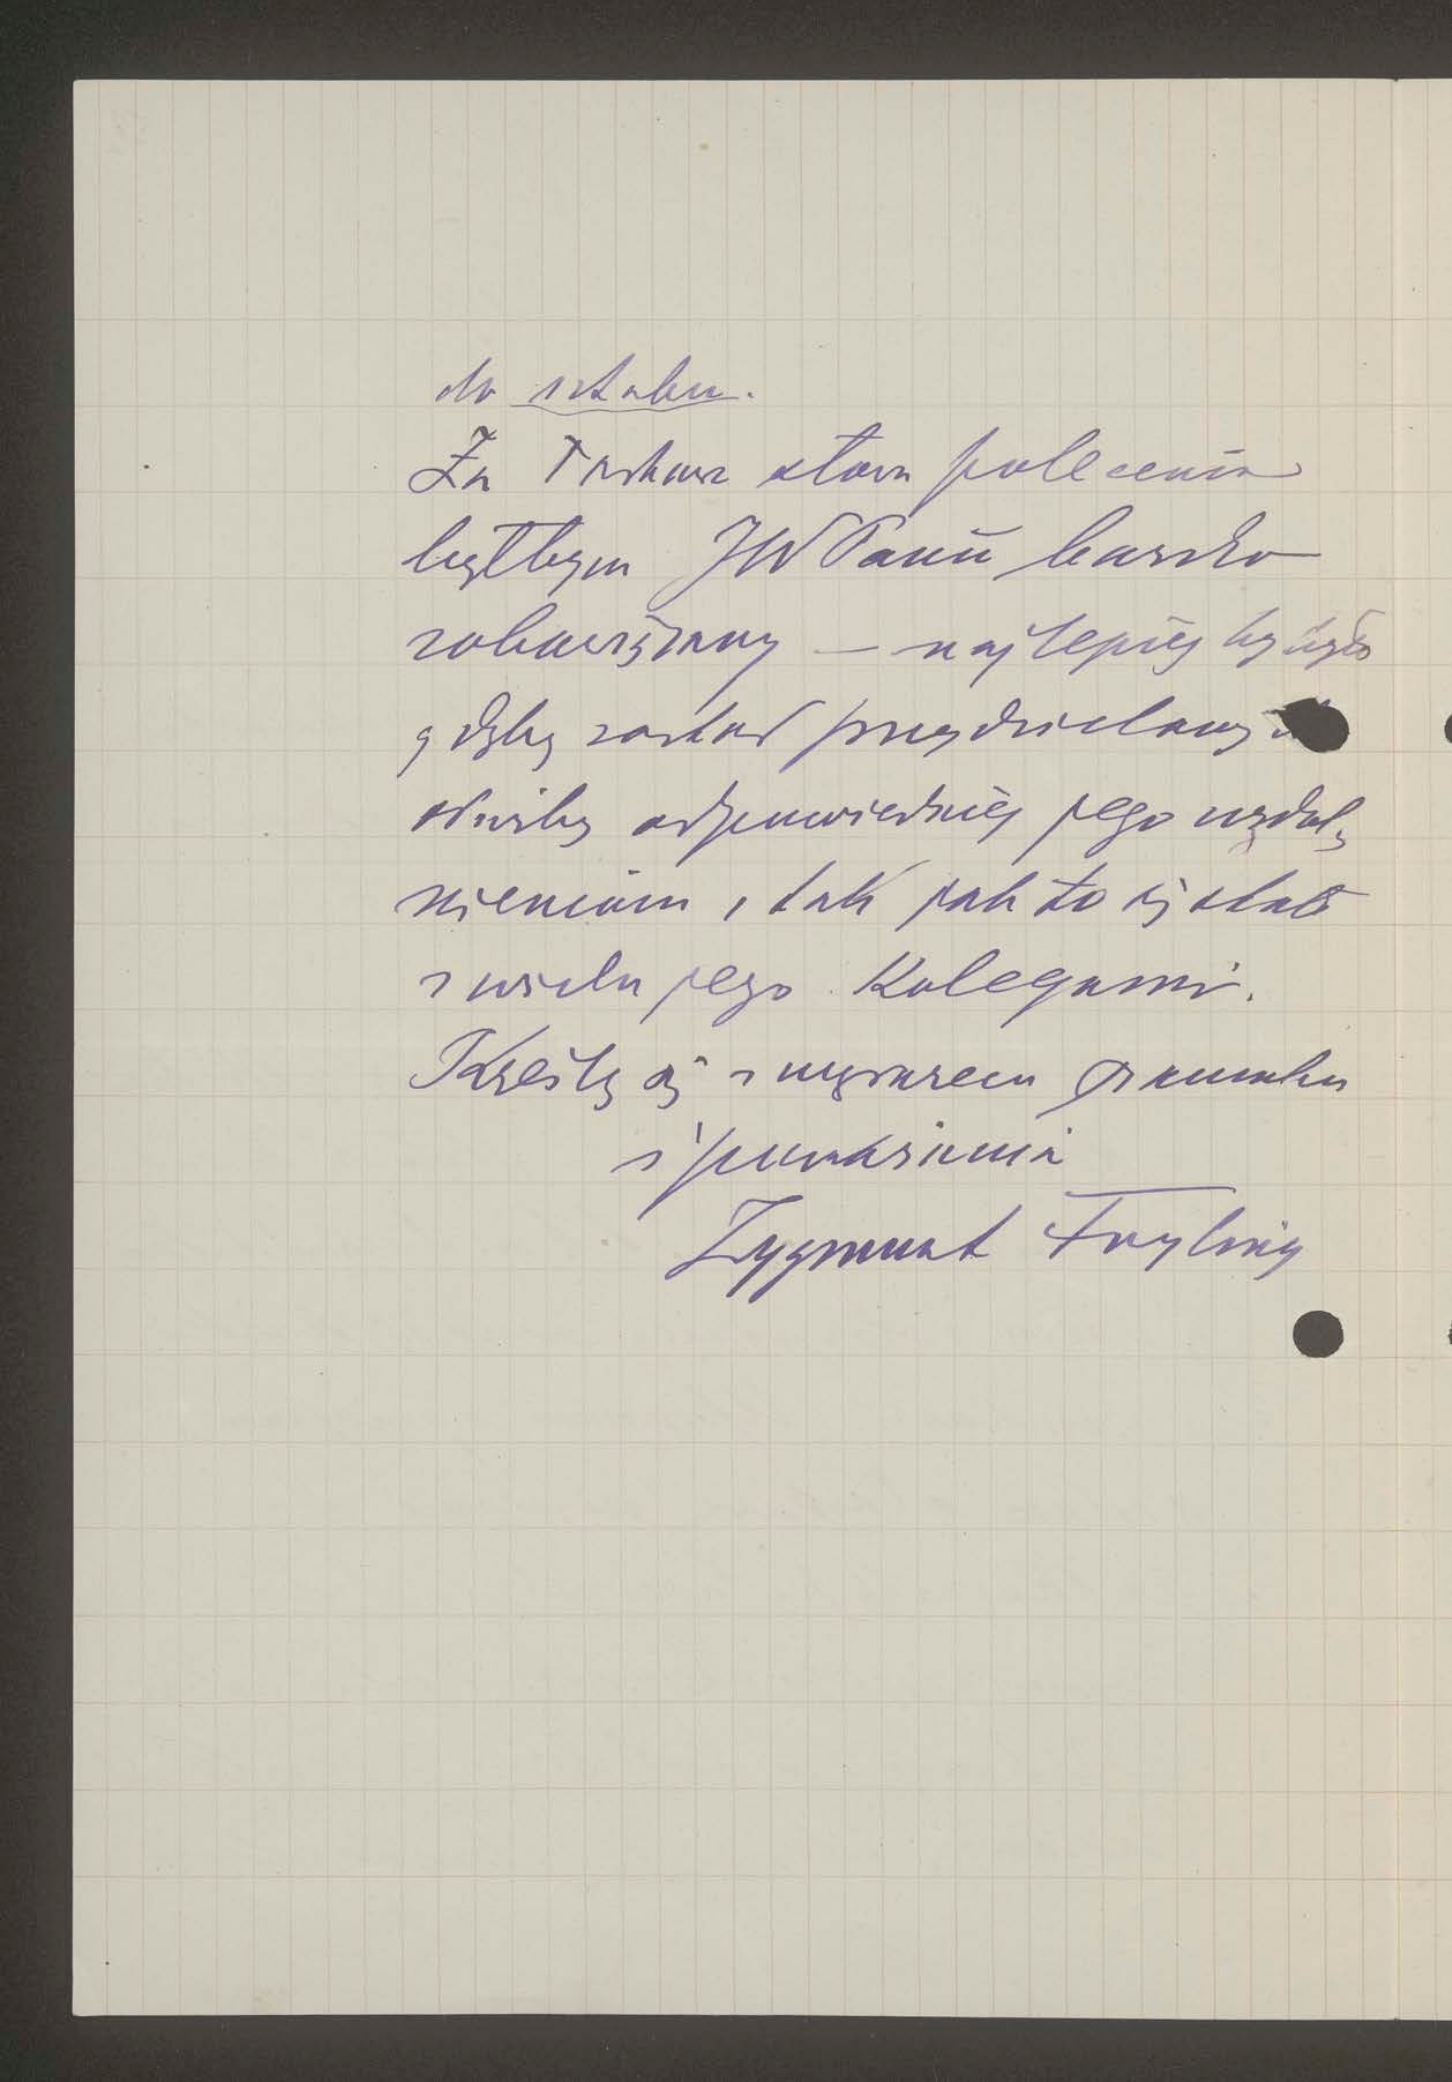 do sztabu.
Za łaskawe słowa polecenia
byłbym JWPanu bardzo
zobowiązany — najlepiej by było
gdyby został przydzielony
służby odpowiedniej jego uzdol-
nieniom, tak jak to się stało
z wielu jego Kolegami.
Kreślę się z wyrazem szacunku
i poważania
Zygmunt Fryling